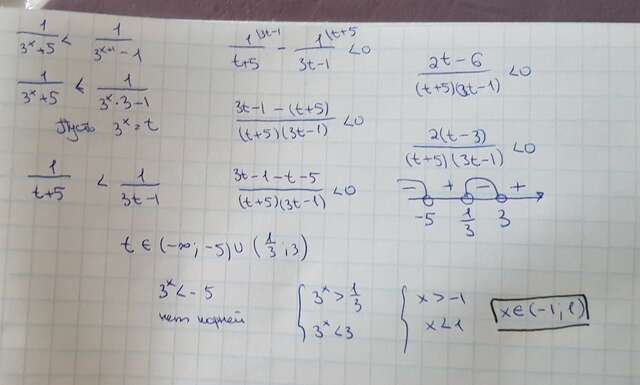 1/(3^x+5) < 1/(3^(x+1)-1)
1/(3^x+5) < 1/(3^x·3-1)
Пусть 3^x = t
1/(t+5) < 1/(3t-1)
1^(\3t-1)/(t+5) - 1^(\t+5)/(3t-1) < 0
(3t-1-(t+5))/((t+5)(3t-1)) < 0
(3t-1-t-5)/((t+5)(3t-1)) < 0
(2t-6)/((t+5)(3t-1)) < 0
2(t-3)/((t+5)(3t-1)) < 0
- + - +
-5 1/3 3
t ∈ (-∞; -5) ∪ (1/3; 3)
3^x < -5
нет корней
{ 3^x > 1/3
3^x < 3
{ x > -1
x < 1
x ∈ (-1; 1)